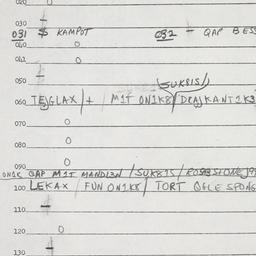 020
030
031 $ KAMPOT 032 — QAP BESS
040
041
050 (SUKS15/)
060 TEJGLAX / + / MIT ON1K8 / DRAJKANT1K3
070
080
090
ON1K QAP MIT MANDL3N / SUKS15 / ROSESLONE J9
100 LEKAX / FUN ON1K8 / TORT QGLE SPONG
110
120
130